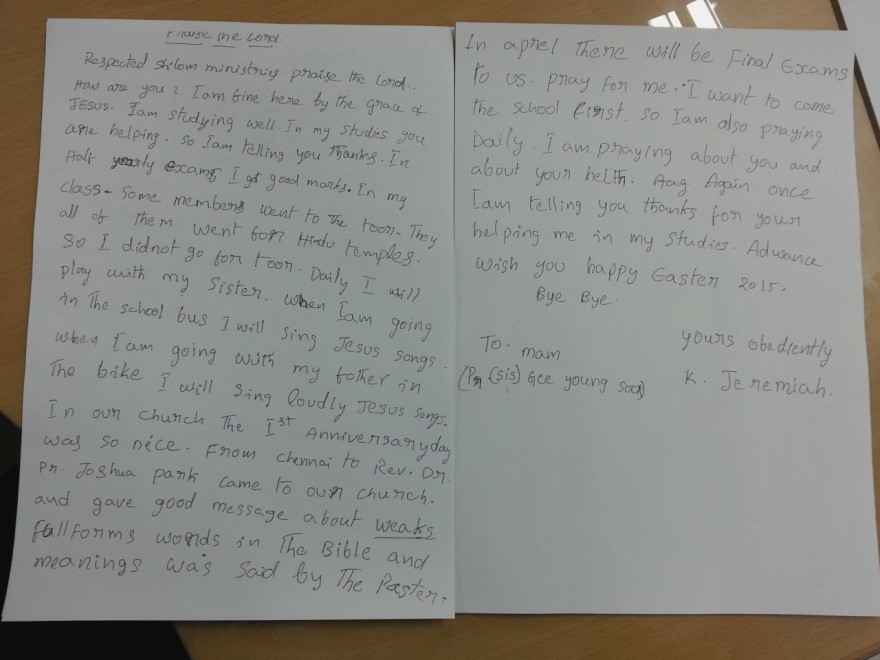 Praise the Lord
Respected shilom ministries praise the Lord..
How are you? I am fine here by the grace of
JESUS. I am studying well. In my studies you
are helping. so I am telling you thanks. In
Half yearly exams I got good marks. In my
class- Some members went to the toor- They
all of them went for Hindu temples.
So I didnot go for toor. Daily I will
play with my sister. when I am going
in the school bus I will sing Jesus songs.
when I am going with my father in
The bike I will sing loudly Jesus songs.
In our church the Ist Anniversaryday
was so nice. From chennai to Rev. Dr.
Pr. Joshua park came to our church.
and gave good message about weaks
fullforms words in The Bible and
meanings was said by The Paster.
In aprel There will be Final Exams
to us. pray for me. I want to come
the school First. so Iam also praying
Daily. I am praying about you and
about your helth. Aag Again once
I am telling you thanks for your
helping me in my studies. Adwance
wish you happy Easter 2015.
Bye Bye.
To. mam
(Pr (sis) Gee young soo)
yours obediently
K. Jeremiah.